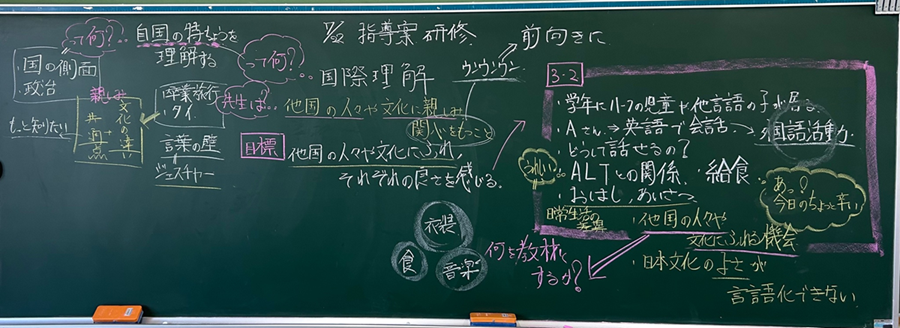 って何?
国の側面
・政治
もっと知りたい
親しみ
文化の違い
+
共通点
自国の特ちょうを
理解する
って何?
卒業旅行
・タイ
言葉の壁
ジェスチャー
共生は…
指導案研修
国際理解
他国の人々や文化に親しみ
関心をもつこと
目標
他国の人々や文化にふれ、
それぞれの良さを感じる。
ウンウンウン
前向きに
3-2
・学年にハーフの児童や他言語の子が居る
・Aさん⇒英語で会話→外国語活動
・どうして話せるの?
うれしい…
・ALTとの関係、給食
・おはし、あいさつ
あっ?
今日のちょっと辛い
日常生活の
・他国の人々や
文化にふれる機会
・日本文化のよさが
言語化できない
衣装
食
音楽
何を教材と
するか?